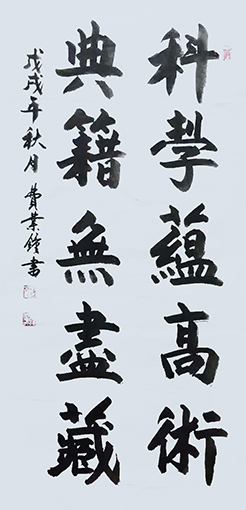 科學蘊高術
典籍無盡藏
戊戌年秋月費業鐘書